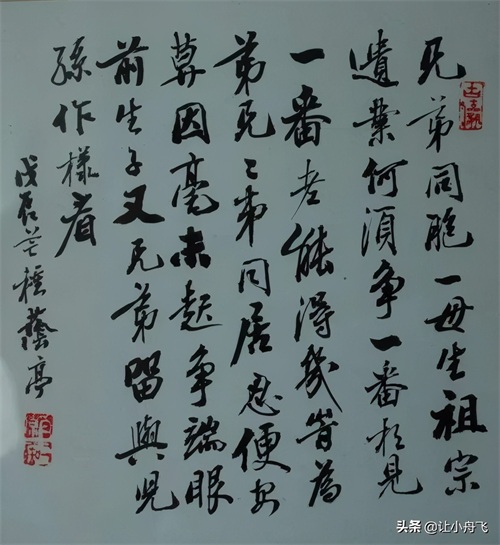 兄弟同胞一母生祖宗
遺業何須争一番相見
一番老能得幾峕為
弟兄々弟同居忍便安
莫因毫末起争端眼
前生子又兄弟留與児
孫作樣看
戊辰芒種蔭亭
头条 @让小舟飞